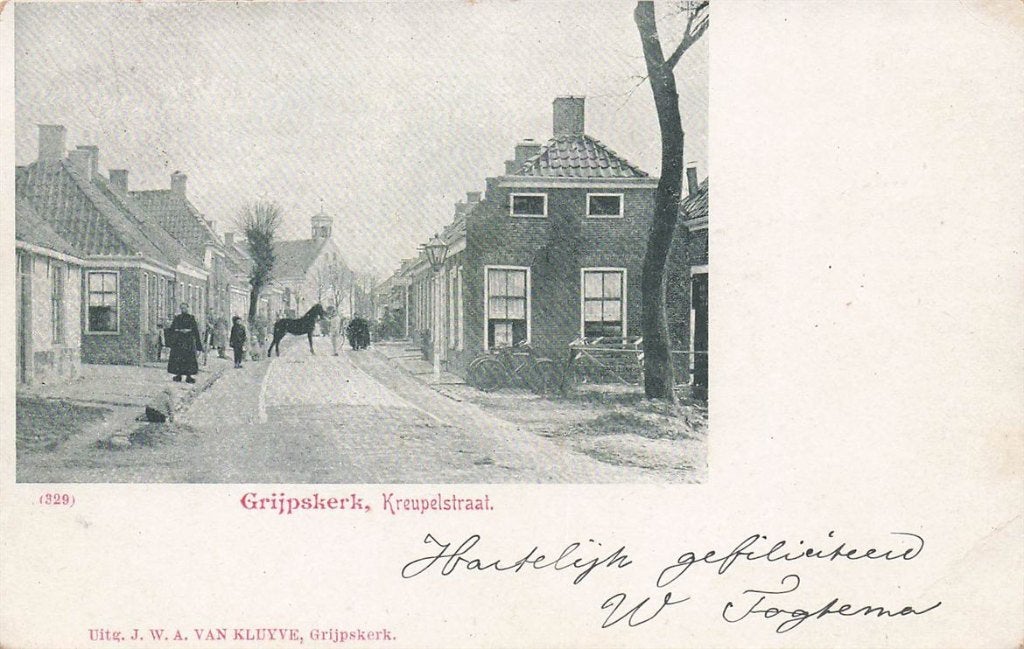 (329)
Grijpskerk, Kreupelstraat.
Hartelijk gefeliciteerd
W Fogtema
Uitg. J. W. A. VAN KLUYVE, Grijpskerk.